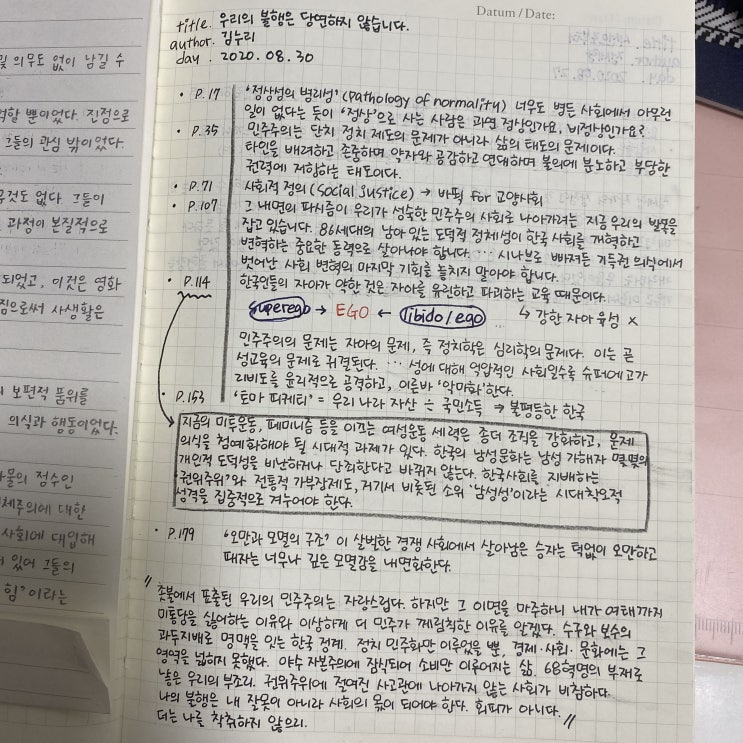 Datum / Date:
title. 우리의 불행은 당연하지 않습니다.
author. 김누리
day. 2020. 08. 30
및 의무도 없이 남길 수
뿐이었다. 진정으로
그들의 관심 밖이었다.
것도 없다. 그들이
과정이 본질적으로
되었고, 이것은 영화
짐으로써 사생활은
보편적 품위를
의식과 행동이었다.
물의 정수인
체주의에 대한
사회에 대입해
있어 그들의
힘'이라는
• P.17 '정상성의 병리성' (pathology of normality) 너무도 병든 사회에서 아무런
일이 없다는 듯이 "정상"으로 사는 사람은 과연 정상인가요, 비정상인가요?
• P.35 민주주의는 단지 정치 제도의 문제가 아니라 삶의 태도의 문제이다.
타인을 배려하고 존중하며 약자와 공감하고 연대하며 불의에 분노하고 부당한
권력에 저항하는 태도이다.
• P.71 사회적 정의(social justice) → 바뀜 for 교양사회
• P.107 그 내면의 파시즘이 우리가 성숙한 민주주의 사회로 나아가려는 지금 우리의 발목을
잡고 있습니다. 86세대의 남아 있는 도덕적 정체성이 한국 사회를 개혁하고
변혁하는 중요한 동력으로 살아나야 합니다. … 시나브로 빠져든 기득권 의식에서
벗어난 사회 변혁의 마지막 기회를 놓치지 말아야 합니다.
• P.114 한국인들의 자아가 약한 것은 자아를 유린하고 파괴하는 교육 때문이다.
superego → EGO ← libido/ego ↳ 강한 자아 육성 x
민주주의의 문제는 자아의 문제, 즉 정치학은 심리학의 문제다. 이는 곧
성교육의 문제로 귀결된다. … 성에 대해 억압적인 사회일수록 슈퍼에고가
리비도를 윤리적으로 공격하고, 이른바 '악마화'한다.
• P.153 '토마 피케티' = 우리 나라 자산 ÷ 국민소득 → 불평등한 한국
지금의 미투운동, 페미니즘 등을 이끄는 여성운동 세력은 좀더 조직을 강화하고, 문제
의식을 첨예화해야 될 시대적 과제가 있다. 한국의 남성문화는 남성 가해자 몇몇의
개인적 도덕성을 비난하거나 단죄한다고 바뀌지 않는다. 한국사회를 지배하는
'권위주의'와 전통적 가부장제도, 거기서 비롯된 소위 '남성성'이라는 시대착오적
성격을 집중적으로 겨누어야 한다.
• P.179 '오만과 모멸의 구조' 이 살벌한 경쟁 사회에서 살아남은 승자는 턱없이 오만하고
패자는 너무나 깊은 모멸감을 내면화한다.
" 촛불에서 표출된 우리의 민주주의는 자랑스럽다. 하지만 그 이면을 마주하니 내가 여태까지
미통당을 싫어하는 이유와 이상하게 더 민주가 께림칙한 이유를 알겠다. 수구와 보수의
과두지배로 명맥을 잇는 한국 정계. 정치 민주화만 이루었을 뿐, 경제·사회·문화에는 그
영역을 넓히지 못했다. 야수 자본주의에 잠식되어 소비만 이루어지는 삶. 68혁명의 부재로
낳은 우리의 부조리. 권위주의에 절여진 사고관에 나아가지 않는 사회가 비참하다.
나의 불행은 내 잘못이 아니라 사회의 몫이 되어야 한다. 회피가 아니다.
더는 나를 착취하지 않으리. "